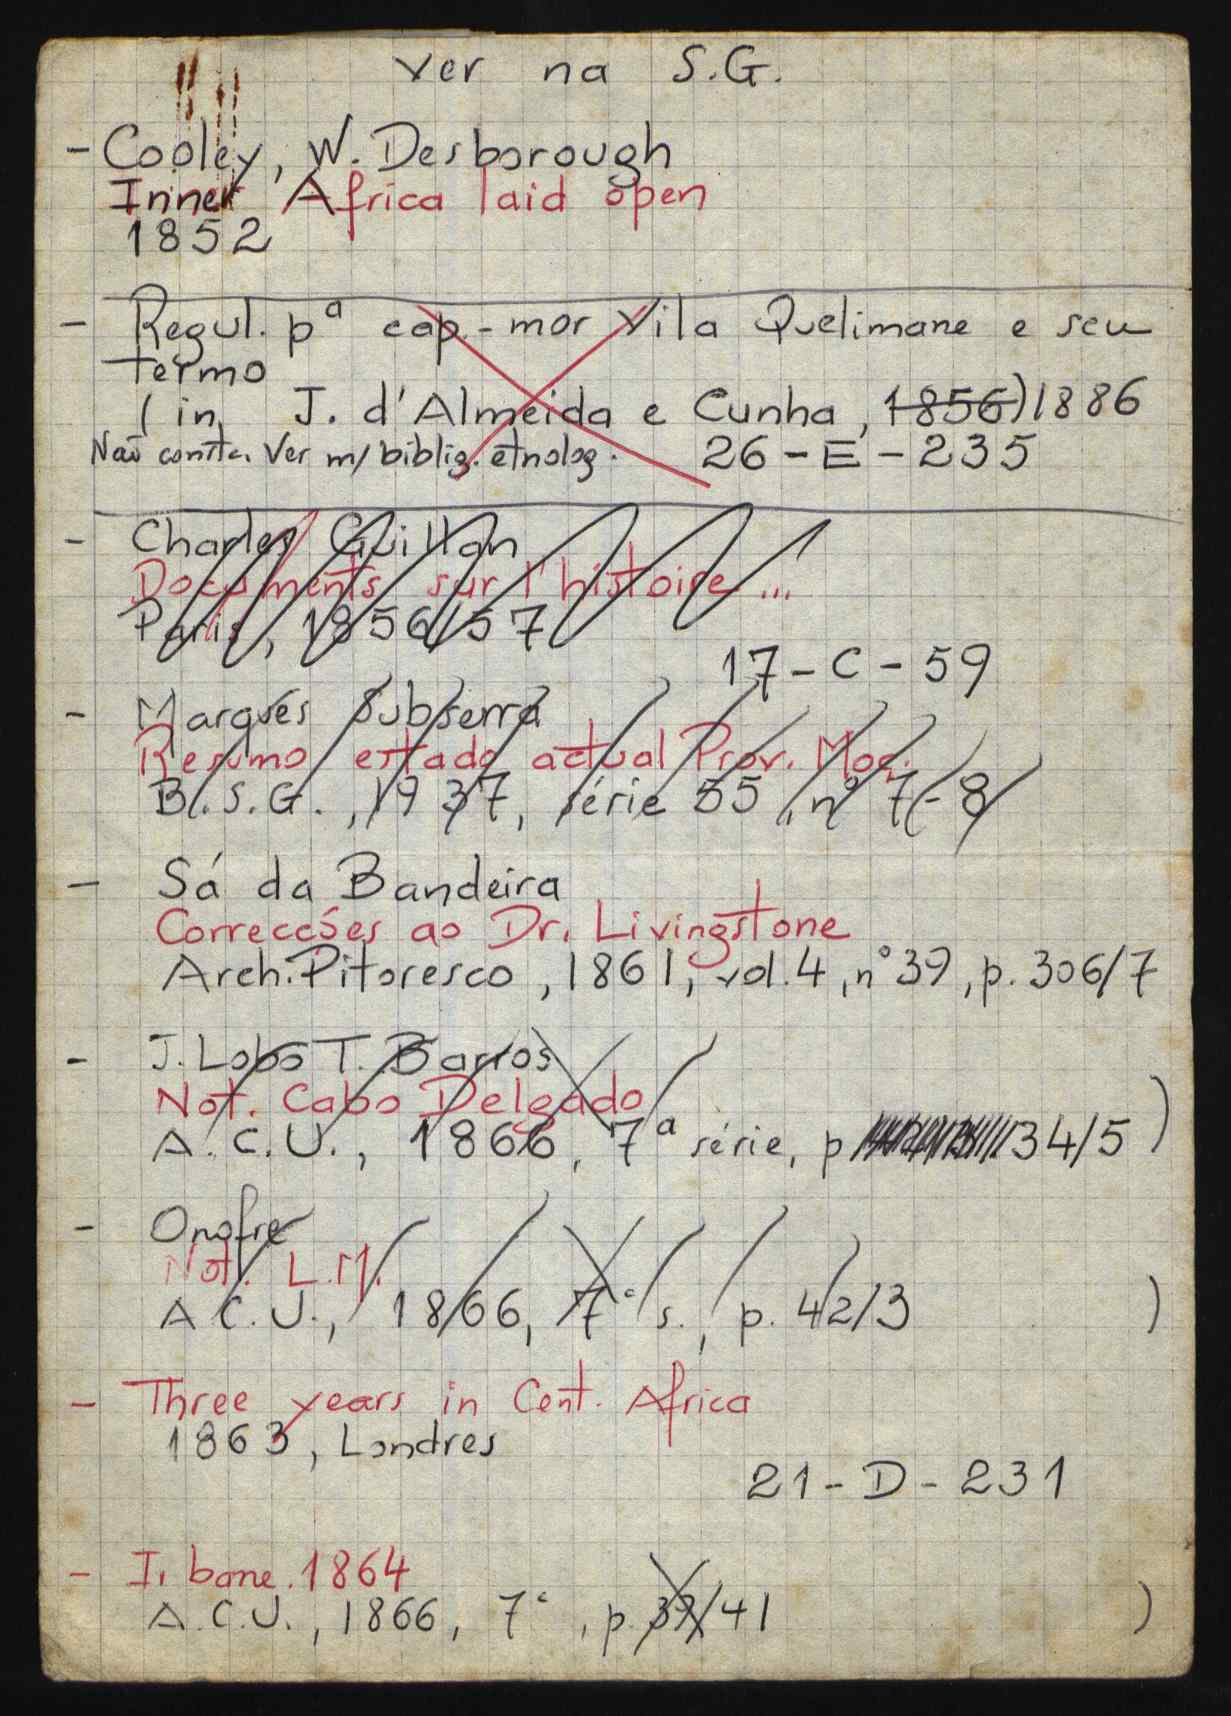 Ver na S.G.
- Cooley, W. Desborough
Inner Africa laid open
1852
- Regul. pª cap.-mor Vila Quelimane e seu
termo
(in J. d'Almeida e Cunha, 1856) 1886
Não consta. Ver m/ bibliog. etnolog. 26-E-235
- Charles Guillan
Documents sur l'histoire...
Paris, 1856/57
17-C-59
- Marquês Subserra
Resumo estado actual Prov. Moç.
B.S.G., 1937, série 55, nº 7-8
- Sá da Bandeira
Correcções ao Dr. Livingstone
Arch. Pitoresco, 1861, vol. 4, nº 39, p. 306/7
- J. Lobo T. Barros
Not. Cabo Delgado
A.C.U., 1866, 7ª série, p 34/5 )
- Onofre
Not. L.M.
A.C.U., 1866, 7ª s., p. 42/3 )
- Three years in Cent. Africa
1863, Londres
21-D-231
- I. bane. 1864
A.C.U., 1866, 7ª, p. 41 )